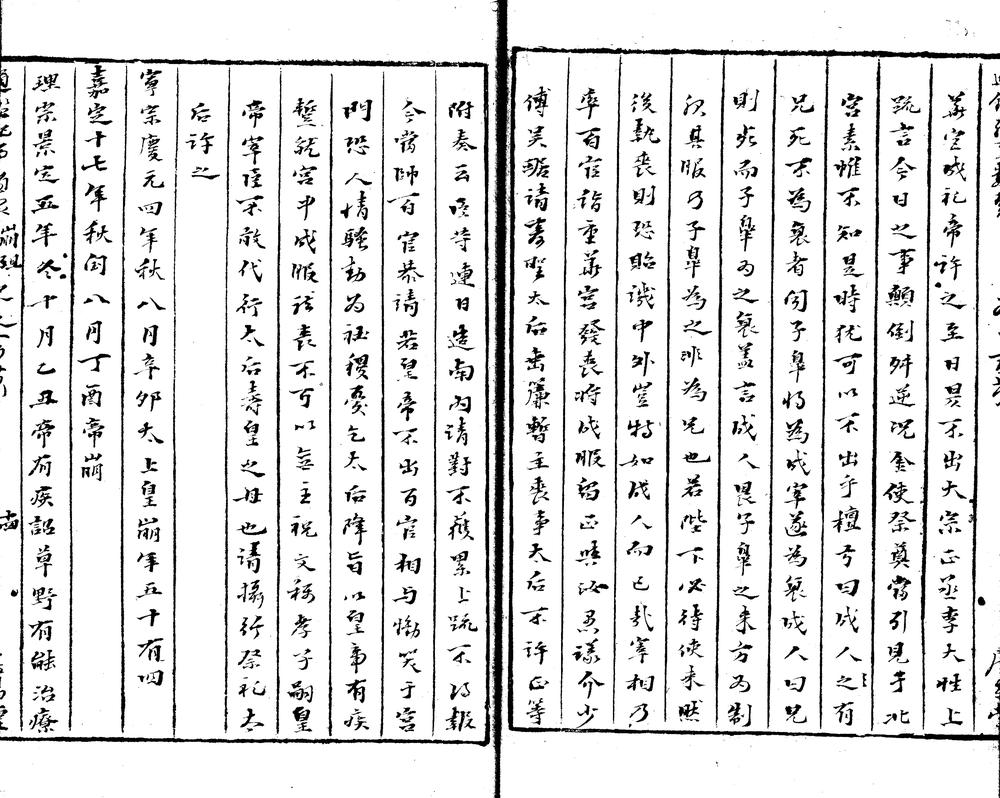 華宮成礼帝許之至日晏不出大宗正丞李大性上
疏言今日之事顛倒舛逆况金使祭奠當引見于北
宮素帷不知是時犹可以不出乎檀弓曰成人之有
兄死不為衰者闻子皐将為成宰遂為衰成人曰兄
則死而子皐为之衰盖言成人畏子皐之来方为制
衣其服乃子皐為之非為兄也若陛下必待使来然
後執丧則恐貽譏中外豈特如成人而已哉宰相乃
率百官詣重華宮發丧将成服留正與汝愚議介少
傅吴琚請壽聖太后垂簾暫主丧事太后不許正等
附奏云臣等連日造南内請對不獲累上疏不得報
今當帥百官恭請若皇帝不出百官相与慟哭于宮
門恐人情騷動为社稷憂乞太后降旨以皇帝有疾
暫就宮中成服然丧不可以無主祝文称孝子嗣皇
帝宰臣不敢代行太后壽皇之母也請攝行祭礼太
后許之
寧宗慶元四年秋八月辛卯太上皇崩年五十有四
嘉定十七年秋闰八月丁酉帝崩
理宗景定五年冬十月乙丑帝有疾詔草野有能治療